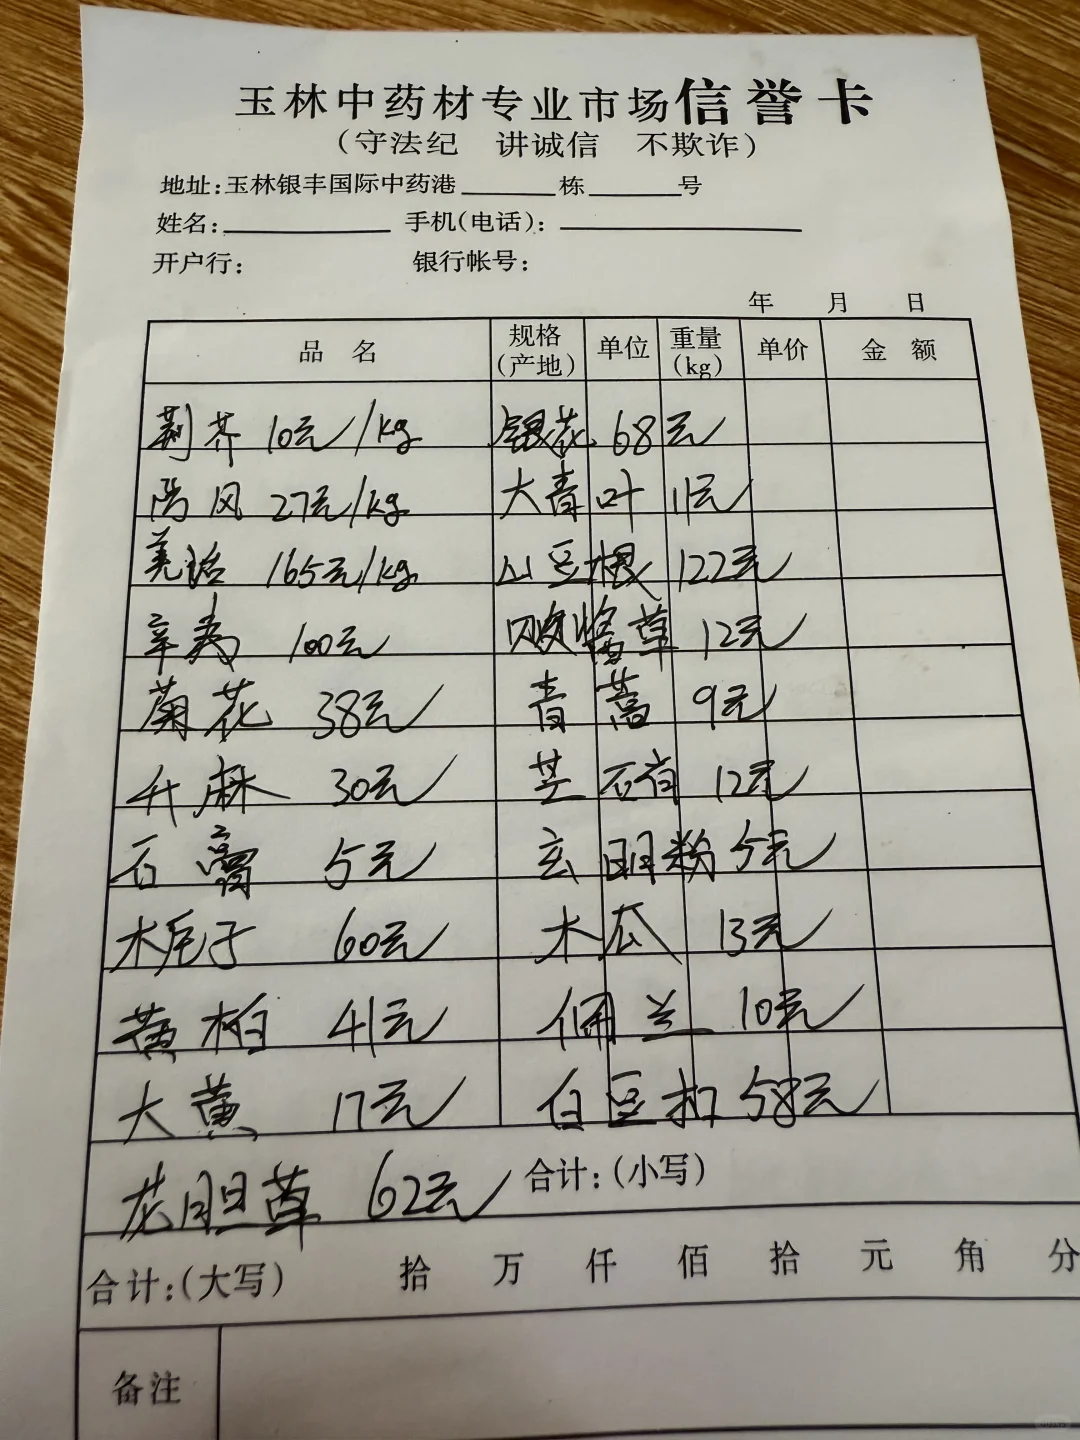 玉林中药材专业市场信誉卡
(守法纪 讲诚信 不欺诈)
地址:玉林银丰国际中药港______栋______号
姓名:__________ 手机(电话):______________
开户行: 银行帐号:
年 月 日
品名 规格(产地) 单位 重量(kg) 单价 金额
荆芥 10元/kg 银花 68元
防风 27元/kg 大青叶 11元
羌活 165元/kg 山豆根 122元
辛夷 100元 败酱草 12元
菊花 38元 青蒿 9元
升麻 30元 芒硝 12元
石膏 5元 玄明粉 5元
木瓜 13元
60元
黄柏 41元 佩兰 10元
大黄 17元 白豆扣 58元
龙胆草 62元 合计:(小写)
合计:(大写) 拾 万 仟 佰 拾 元 角 分
备注